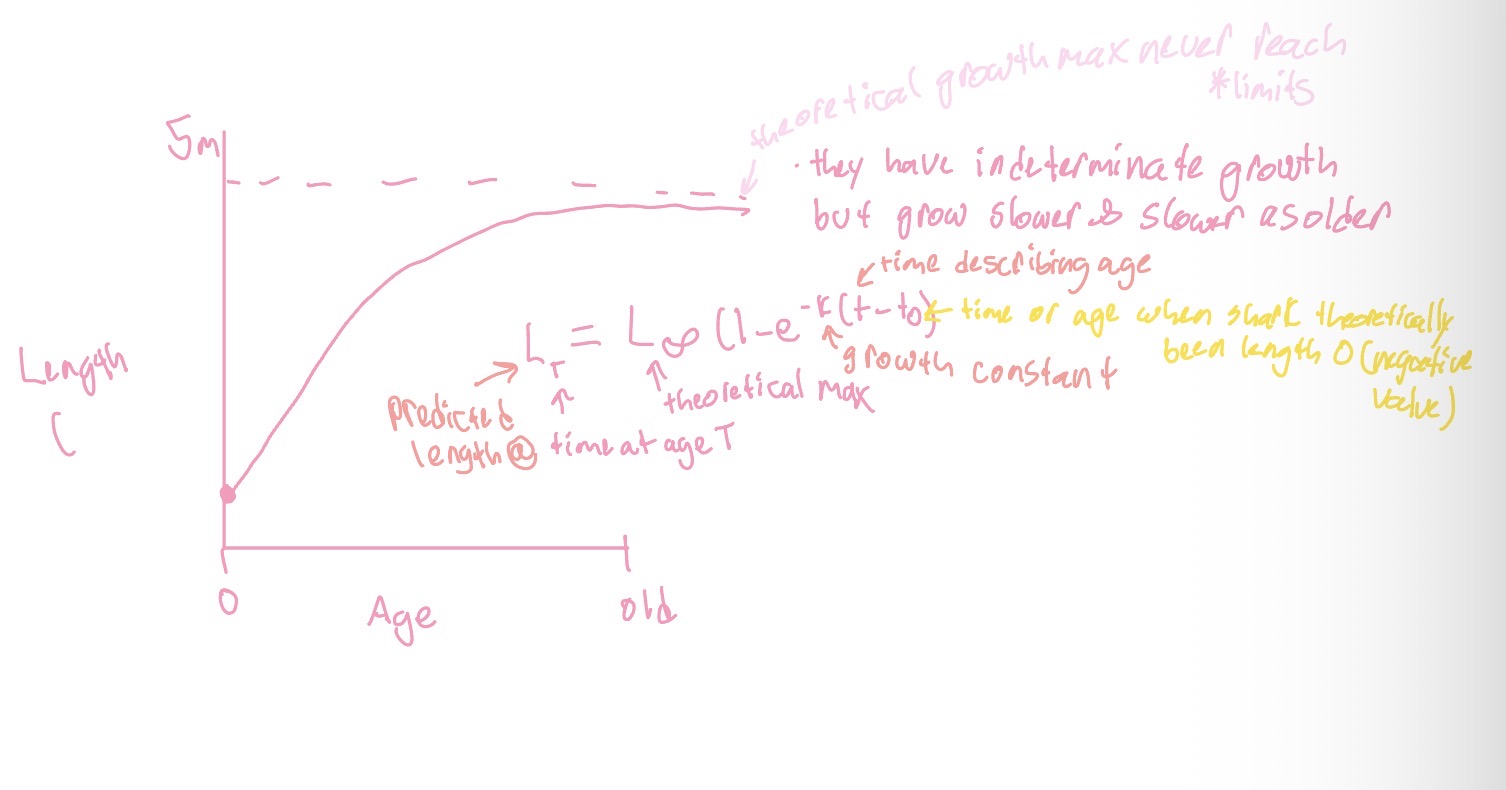 theoretical growth max never reach
*limits
5m
· they have indeterminate growth
but grow slower & slower as older
time describing age
L_T = L∞ (1-e^-k(t-t0))
time or age when shark theoretically
been length 0 (negative
value)
growth constant
theoretical max
Predicted
length@
time at age T
Length
(
0
Age
old